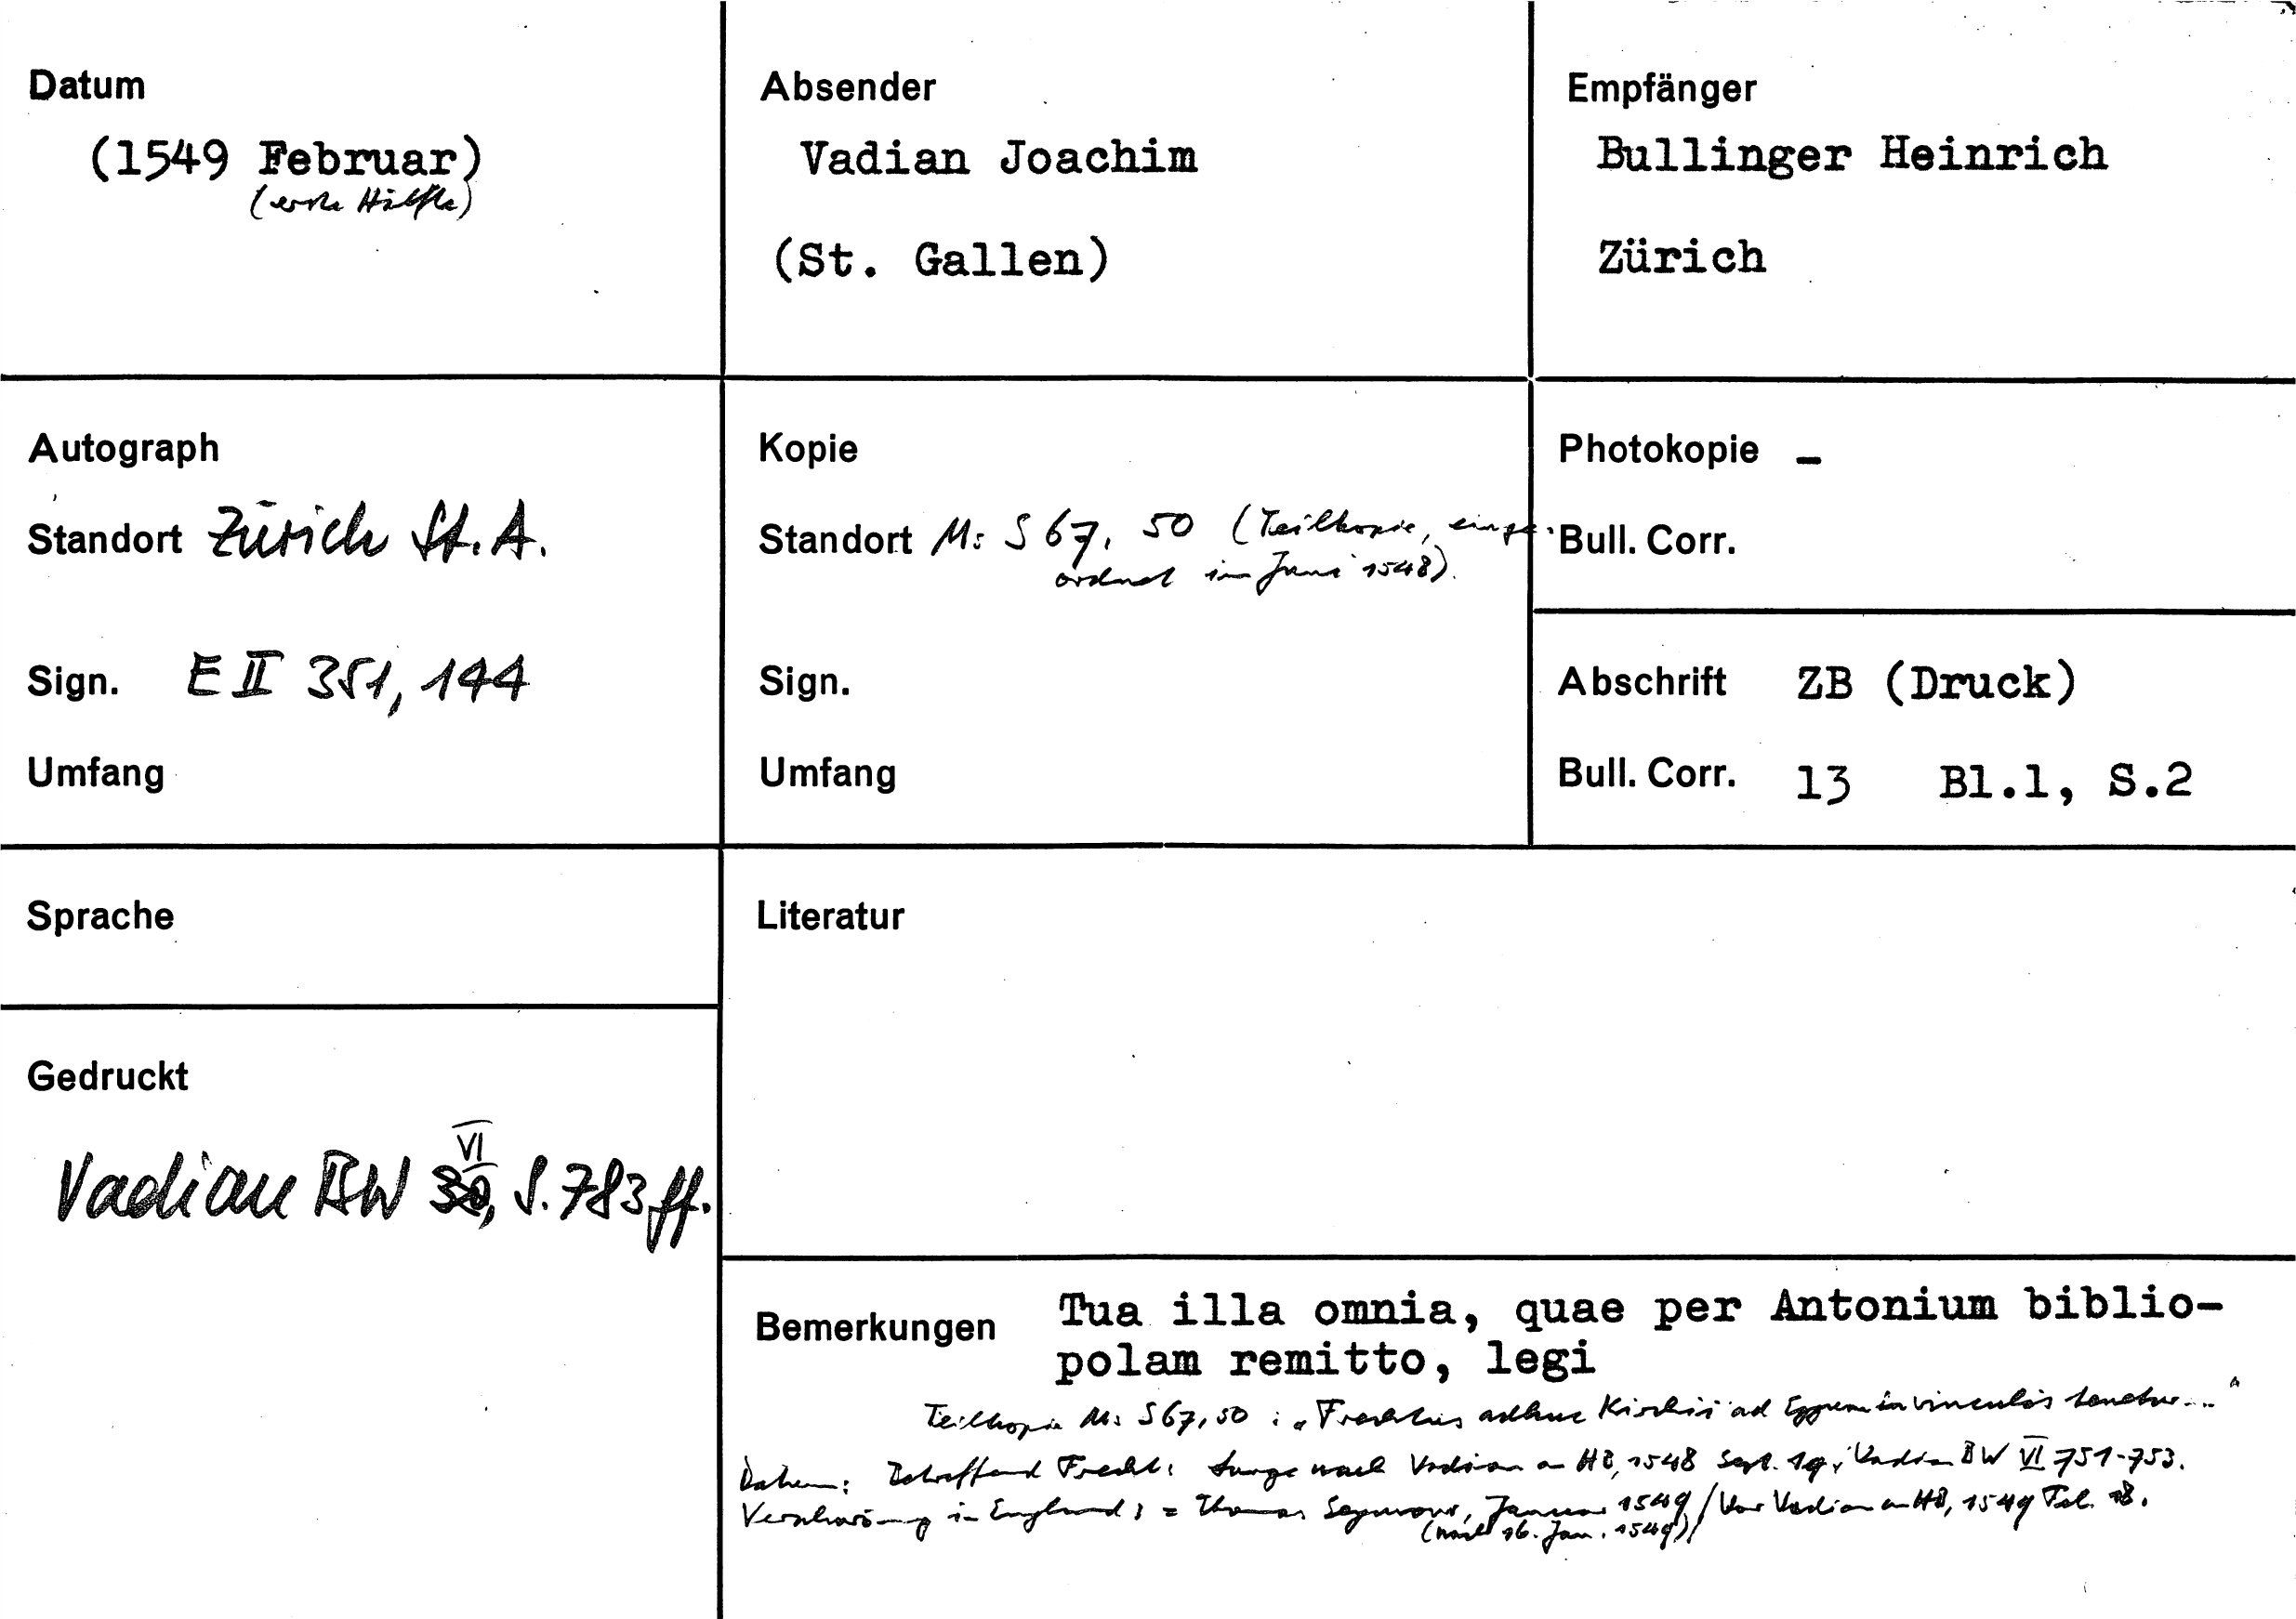 Datum
(1549 Februar)
(erste Hälfte)
Absender
Vadian Joachim
(St. Gallen)
Empfänger
Bullinger Heinrich
Zürich
Autograph
Standort Zürich St. A.
Sign. E II 351, 144
Umfang
Kopie
Standort Ms S 67, 50 (Teilkopie, einge-
ordnet im Juni 1548).
Sign.
Umfang
Photokopie –
Bull. Corr.
Abschrift ZB (Druck)
Bull. Corr. 13 Bl.1, S.2
Sprache
Gedruckt
VI
Vadian BW 30, S. 783 ff.
Literatur
Bemerkungen Tua illa omnia, quae per Antonium biblio-
polam remitto, legi
Teilkopie Ms S 67, 50 : "Frechtus adhuc Kirchii ad in vinculis tenetur..."
Datum: Betreffend Frecht: lange nach Vadian an HB, 1548 Sept. 19, Vadian BW VI 751-753.
Verschwörung in England: = Thomas Seymour, Januar 1549 / Vor Vadian an HB, 1549 Feb. 18.
(nach 16. Jan. 1549)